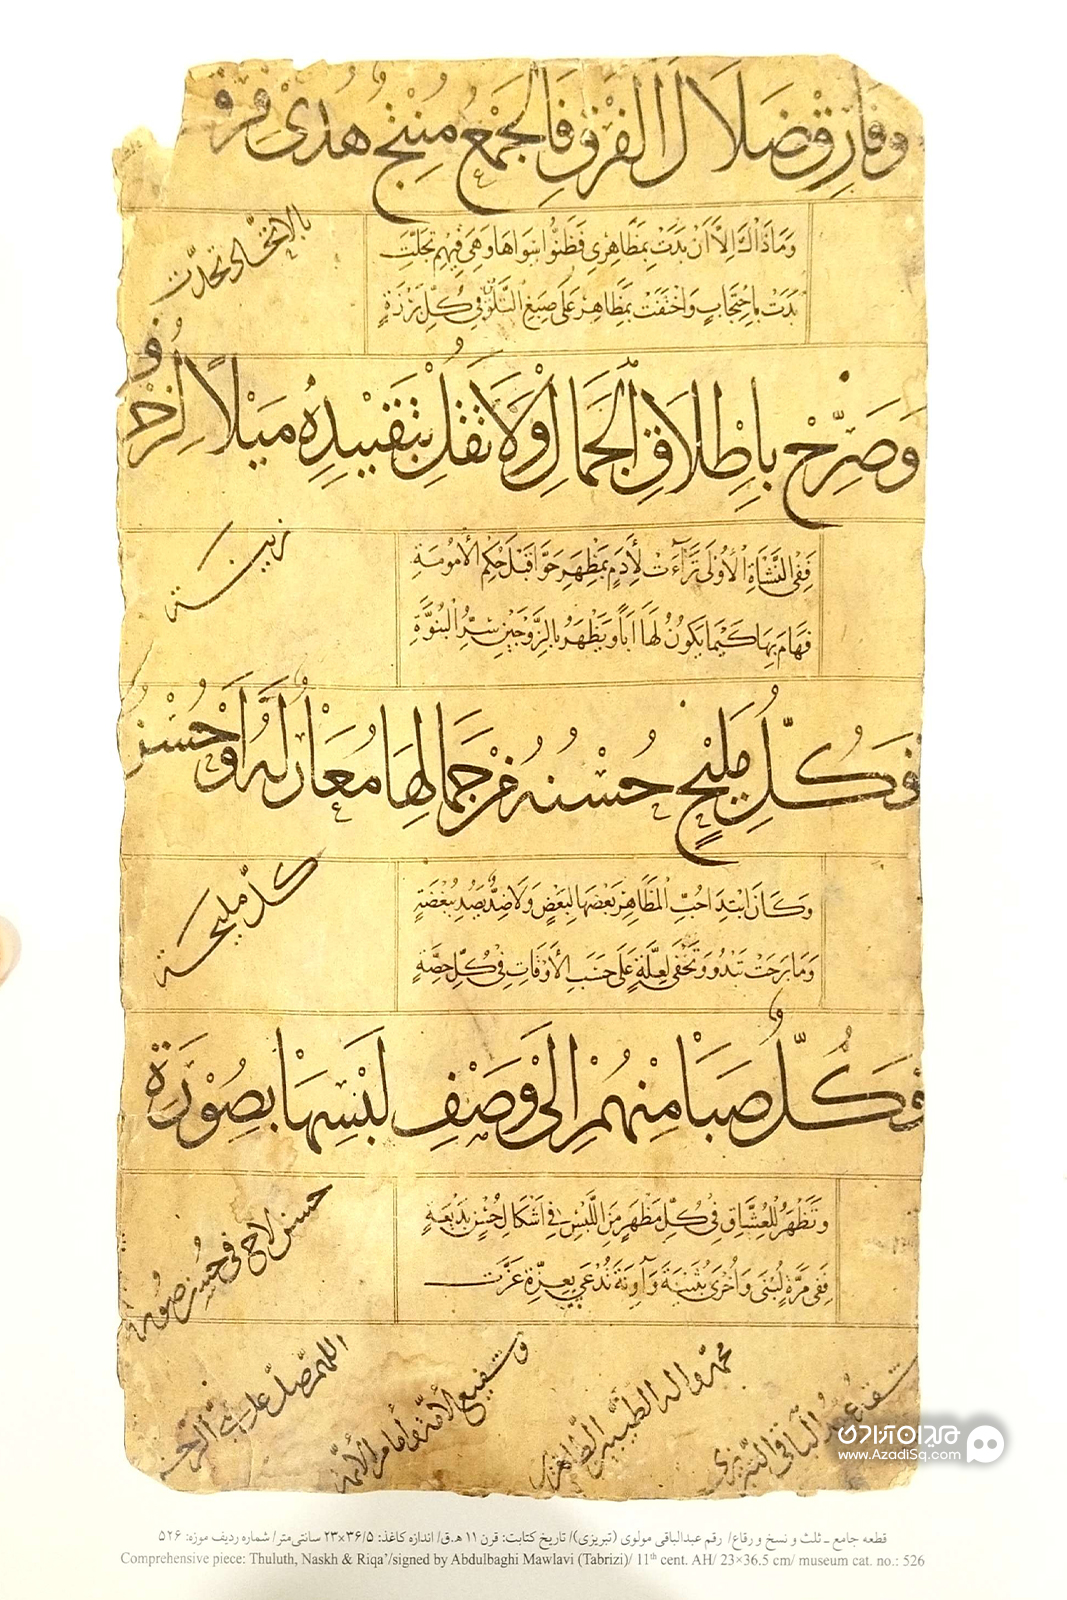 وَفَارِقْ ضَلَالَ الْفَرْقِ فَالْجَمْعُ مُنْتِجٌ هُدَىٰ فِرْقَ
بِالِاتِّحَادِ تَحَدَّتِ
وَمَا ذَاكَ اِلَّا اَنْ بَدَتْ بِمَظَاهِرِي فَظَنُّوا سِوَاهَا وَهْيَ فِيهِمْ تَجَلَّتِ
بَدَتْ بِاحْتِجَابٍ وَاخْتَفَتْ بِمَظَاهِرٍ عَلَى صِبَغِ التَّلْوِينِ فِي كُلِّ بَرْزَةٍ
وَصَرِّحْ بِاِطْلَاقِ الْجَمَالِ وَلَا تَقُلْ بِتَقْيِيدِهِ مَيْلًا لِزُخْرُفِ
زِينَةٍ
فَفِي النَّشْأَةِ الْأُولَى تَرَاءَتْ لِأَدَمٍ بِمَظْهَرِ حَوَّا قَبْلَ حُكْمِ الْأُمُومَةِ
فَهَامَ بِهَا كَيْمَا يَكُونُ لَهَا اَبًا وَيَظْهَرُ بِالزَّوْجَيْنِ سِرُّ الْبُنُوَّةِ
وَكُلُّ مَلِيْحٍ حُسْنُهُ مِنْ جَمَالِهَا مُعَارٌ لَهُ اَوْ حُسْنُ
كلّ مليحة
وَكَانَ ابْتِدَا حُبِّ الْمَظَاهِرِ بَعْضِهَا لِبَعْضٍ وَلَا ضِدٌّ يَصُدُّ بِبُغْضَةٍ
وَمَا بَرِحَتْ تَبْدُو وَتَخْفَى لِعِلَّةٍ عَلَى حَسَبِ الْأَوْقَاتِ فِي كُلِّ حِقْبَةٍ
وَكُلٌّ صَبَا مِنْهُمْ اِلَى وَصْفِ لَبْسِهَا بِصُوْرَةِ
حسن لاح في حُسن صورة
وَتَظْهَرُ لِلْعُشَّاقِ فِي كُلِّ مَظْهَرٍ مِنَ اللَّبْسِ فِي اَشْكَالِ حُسْنٍ بَدِيعَةٍ
فَفِي مَرَّةٍ لُبْنَى وَاُخْرَى بُثَيْنَةً وَآوِنَةً تُدْعَى بِعَزَّةَ عَزَّتِ
اللهم صلّ على نبيّ الرحمة
وشفيع الأمّة وإمام الأئمّة
محمد وآله الطيبين الطاهرين
عبد الباقي التبريزي
میدان آزادی
www.AzadiSq.com
قطعه جامع ـ ثلث و نسخ و رقاع/ رقم عبدالباقی مولوی (تبریزی)/ تاریخ کتابت: قرن ۱۱ ه‍.ق/ اندازه کاغذ: ۲۳×۳۶/۵ سانتی‌متر/ شماره ردیف موزه: ۵۲۶
Comprehensive piece: Thuluth, Naskh & Riqa'/signed by Abdulbaghi Mawlavi (Tabrizi)/ 11th cent. AH/ 23×36.5 cm/ museum cat. no.: 526